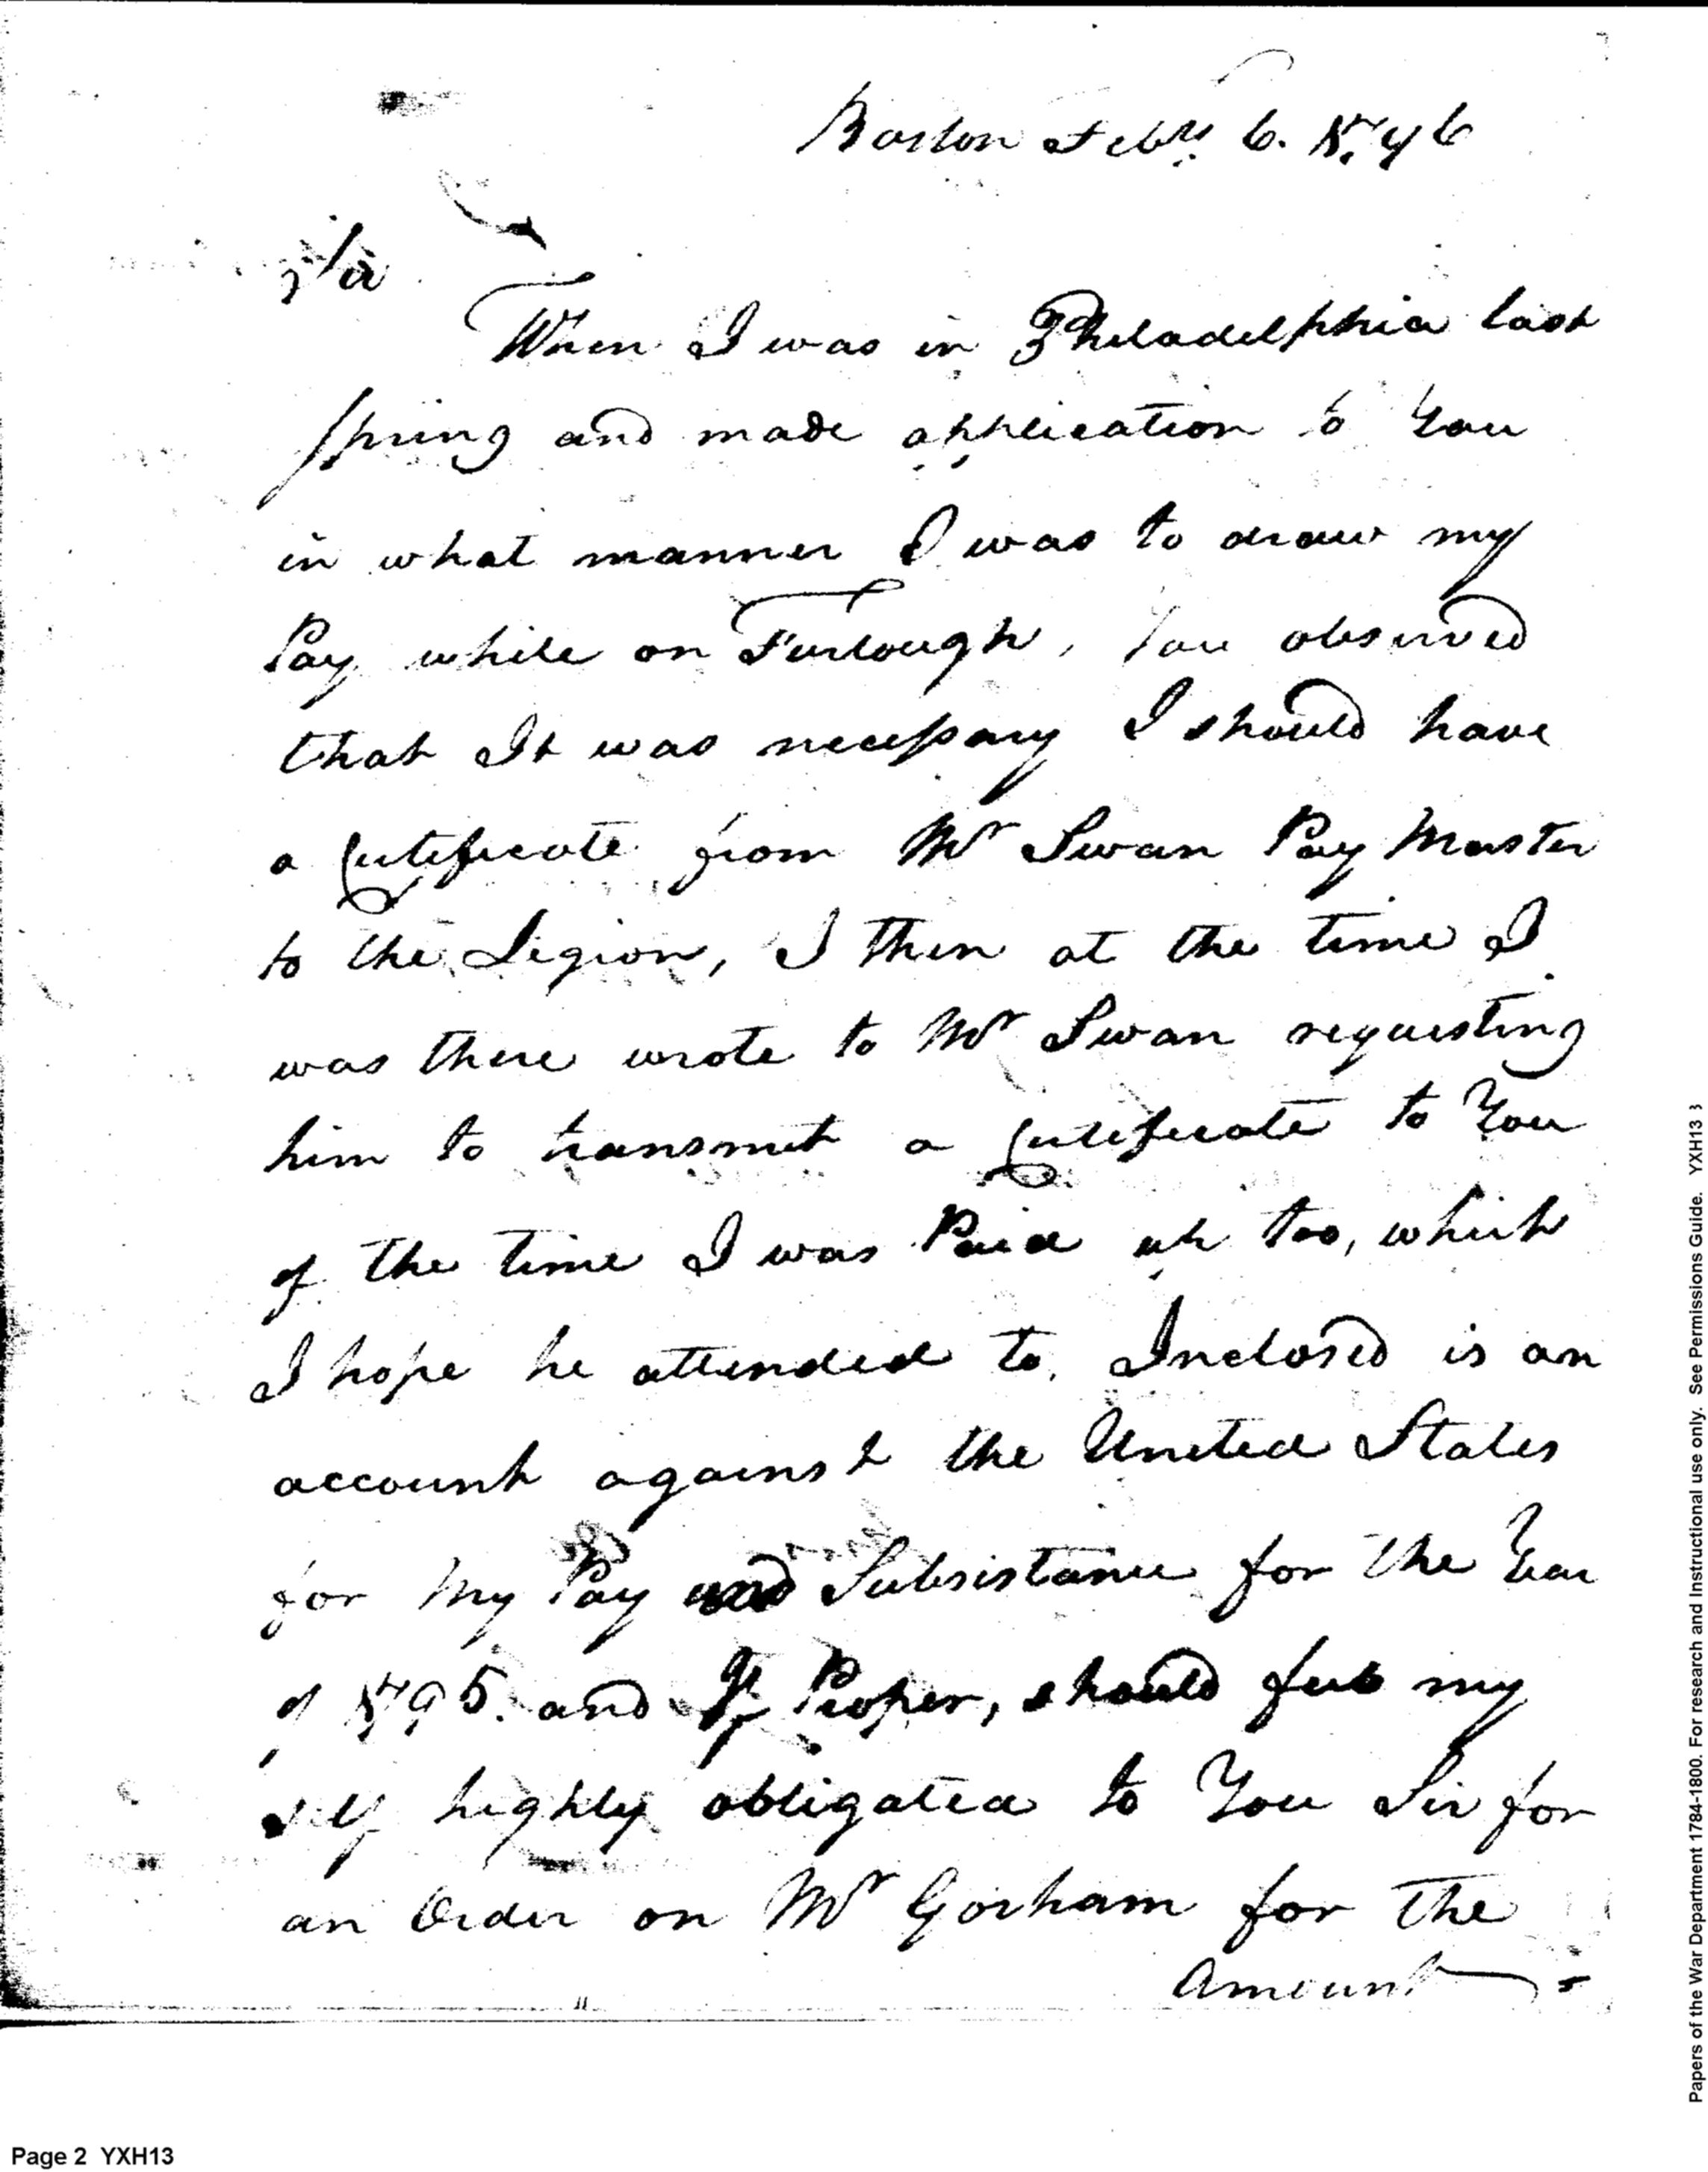 Boston Feby 6. 1796
Sir
When I was in Philadelphia last
spring and made application to You
in what manner I was to draw my
Pay while on Furlough, You observed
that It was necessary I should have
a Certificate from Mr Swan Pay Master
to the Legion, I then at the time I
was there wrote to Mr Swan requesting
him to transmit a Certificate to You
of the time I was Paid up too, which
I hope he attended to. Inclosed is an
account against the United States
for My Pay and Subsistance for the Year
of 1795. and If Proper, should feel my
self highly obligated to You Sir for
an Order on Mr Gorham for the
Amount
Page 2 YXH13
Papers of the War Department 1784-1800. For research and Instructional use only. See Permissions Guide. YXH13 3